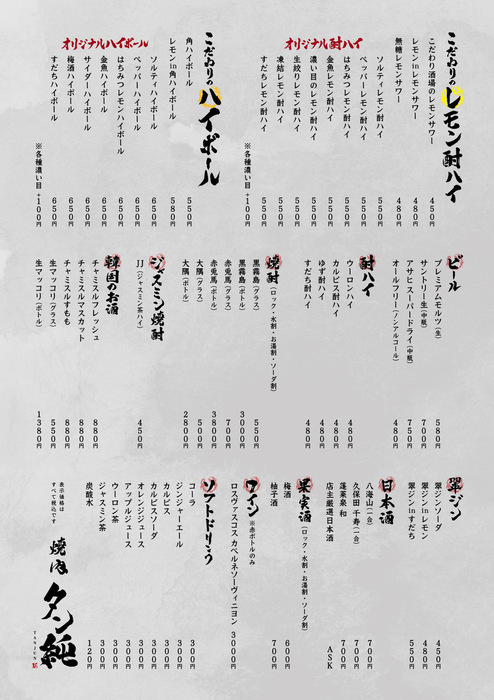 こだわりのレモン酎ハイ
こだわり酒場のレモンサワー 450円
レモンinレモンサワー 480円
無糖レモンサワー 480円
オリジナル酎ハイ
ソルティレモン酎ハイ 550円
ペッパーレモン酎ハイ 550円
はちみつレモン酎ハイ 550円
金魚レモン酎ハイ 550円
濃い目のレモン酎ハイ 550円
生絞りレモン酎ハイ 550円
凍結レモン酎ハイ 550円
すだちレモン酎ハイ 550円
※各種濃い目+100円
こだわりのハイボール
角ハイボール 550円
レモンin角ハイボール 580円
オリジナルハイボール
ソルティハイボール 650円
ペッパーハイボール 650円
はちみつレモンハイボール 650円
金魚ハイボール 650円
サイダーハイボール 650円
梅酒ハイボール 650円
すだちハイボール 650円
※各種濃い目+100円
ビール
プレミアムモルツ(生) 580円
サントリー生(中瓶) 700円
アサヒスーパードライ(中瓶) 750円
オールフリー(ノンアルコール) 480円
酎ハイ
ウーロンハイ 480円
カルピス酎ハイ 480円
ゆず酎ハイ 480円
すだち酎ハイ 480円
焼酎(ロック・水割・お湯割・ソーダ割)
黒霧島(グラス) 550円
黒霧島(ボトル) 3000円
赤兎馬(グラス) 700円
赤兎馬(ボトル) 3800円
大隅(グラス) 500円
大隅(ボトル) 2800円
ジャスミン焼酎
JJ(ジャスミン茶ハイ) 450円
韓国のお酒
チャミスルフレッシュ 880円
チャミスルマスカット 880円
チャミスルすもも 880円
生マッコリ(グラス) 550円
生マッコリ(ボトル) 1380円
翠ジン
翠ジンソーダ 450円
翠ジンinレモン 480円
翠ジンinすだち 550円
日本酒
八海山(一合) 700円
久保田 千寿(一合) 700円
蓬莱泉 和 700円
店主厳選日本酒 ASK
果実酒(ロック・水割・お湯割・ソーダ割)
梅酒 600円
柚子酒 700円
ワイン ※赤ボトルのみ
ロスヴァスコス カベルネソーヴィニヨン 3000円
ソフトドリンク
コーラ 300円
ジンジャーエール 300円
カルピス 300円
カルピスソーダ 300円
オレンジジュース 300円
アップルジュース 300円
ウーロン茶 300円
ジャスミン茶 300円
炭酸水 120円
表示価格は
すべて税込です
焼肉 タン純
TANJUN